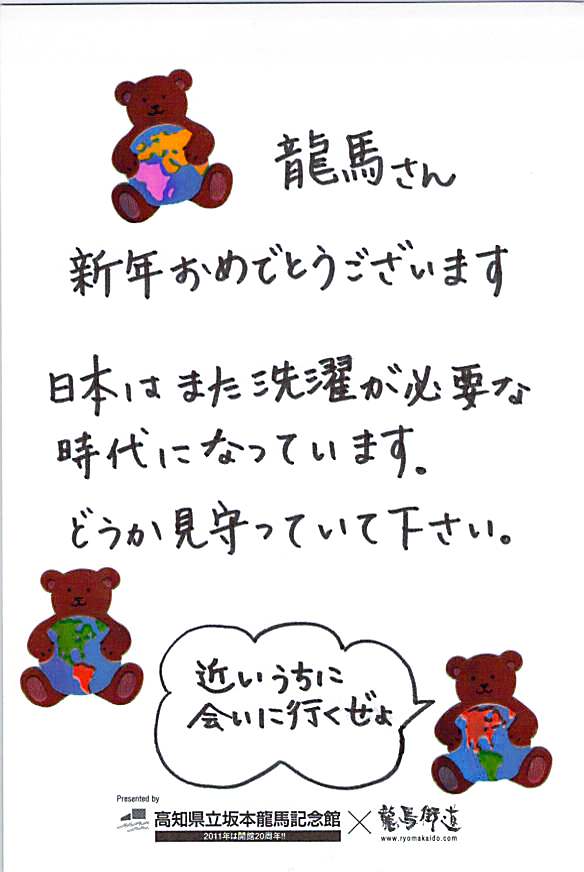 龍馬さん
新年おめでとうございます
日本はまた洗濯が必要な
時代になっています。
どうか見守っていて下さい。
近いうちに
会いに行くぜよ
Presented by
高知県立坂本龍馬記念館 × 龍馬街道
2011年は開館20周年!!
www.ryomakaido.com